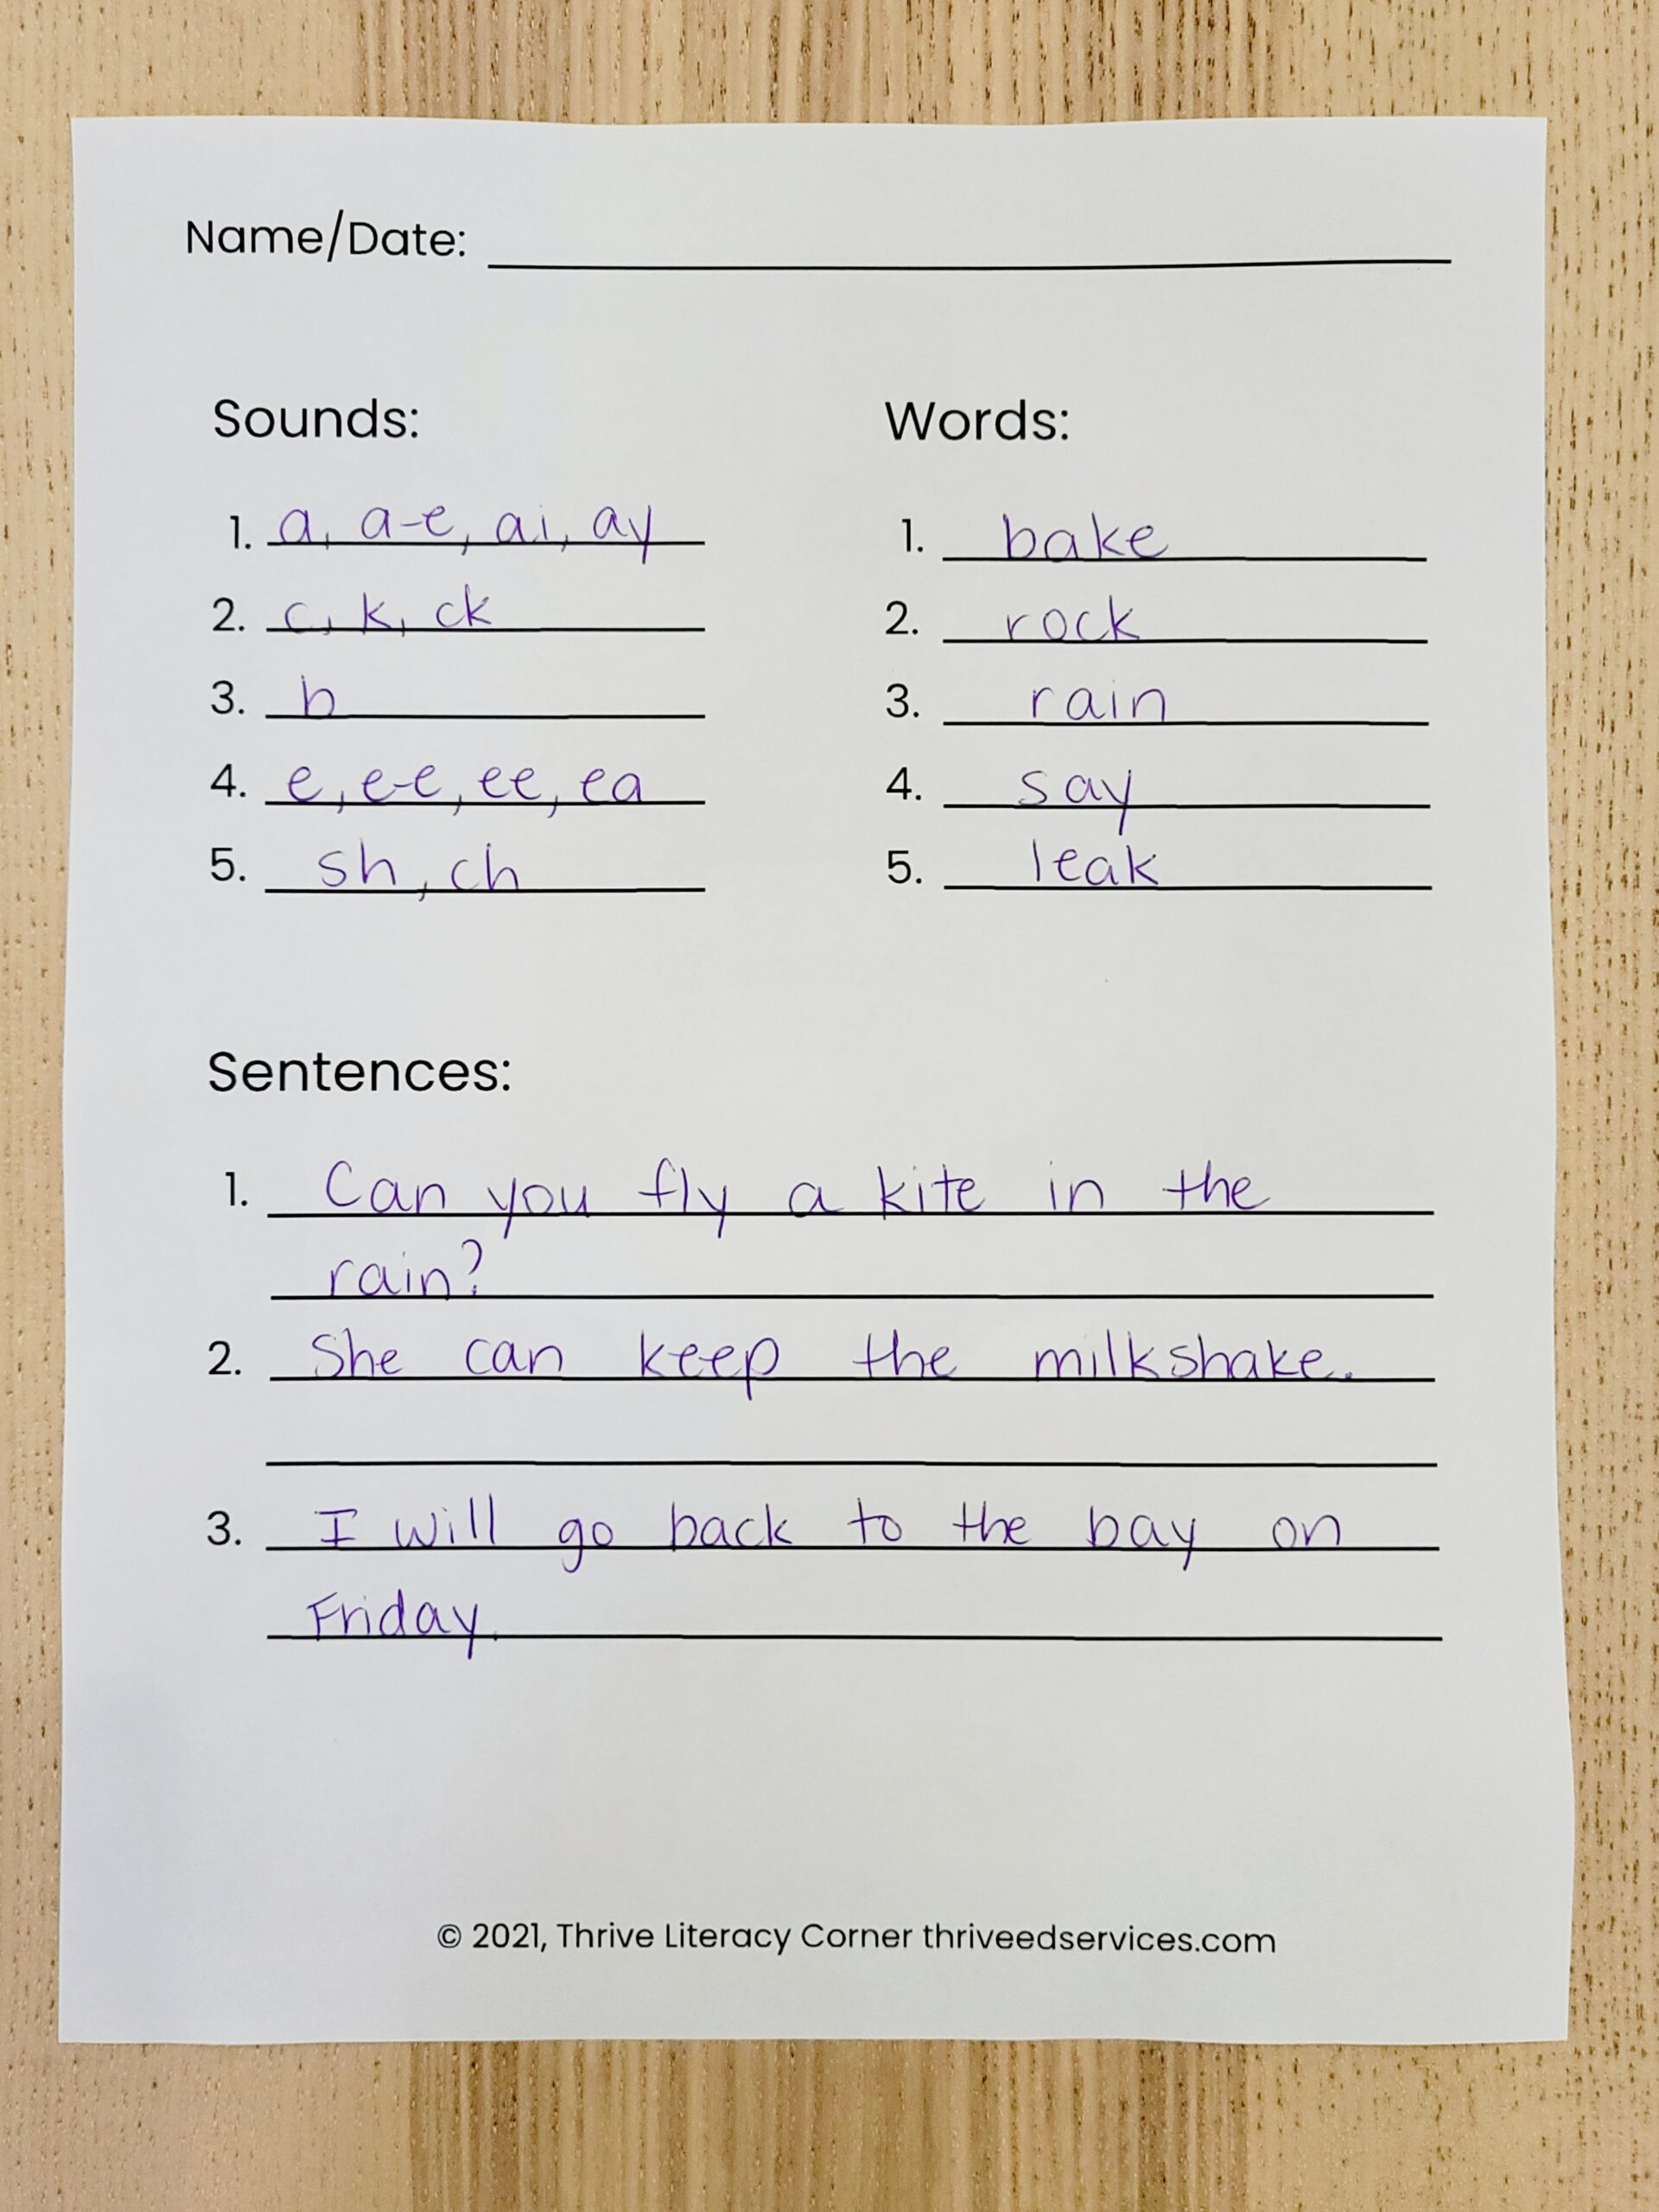 Name/Date:
Sounds:
1. a, a-e, ai, ay
2. c, k, ck
3. b
4. e, e-e, ee, ea
5. sh, ch
Words:
1. bake
2. rock
3. rain
4. say
5. leak
Sentences:
1. Can you fly a kite in the
rain?
2. She can keep the milkshake.
3. I will go back to the bay on
Friday.
© 2021, Thrive Literacy Corner thriveedservices.com